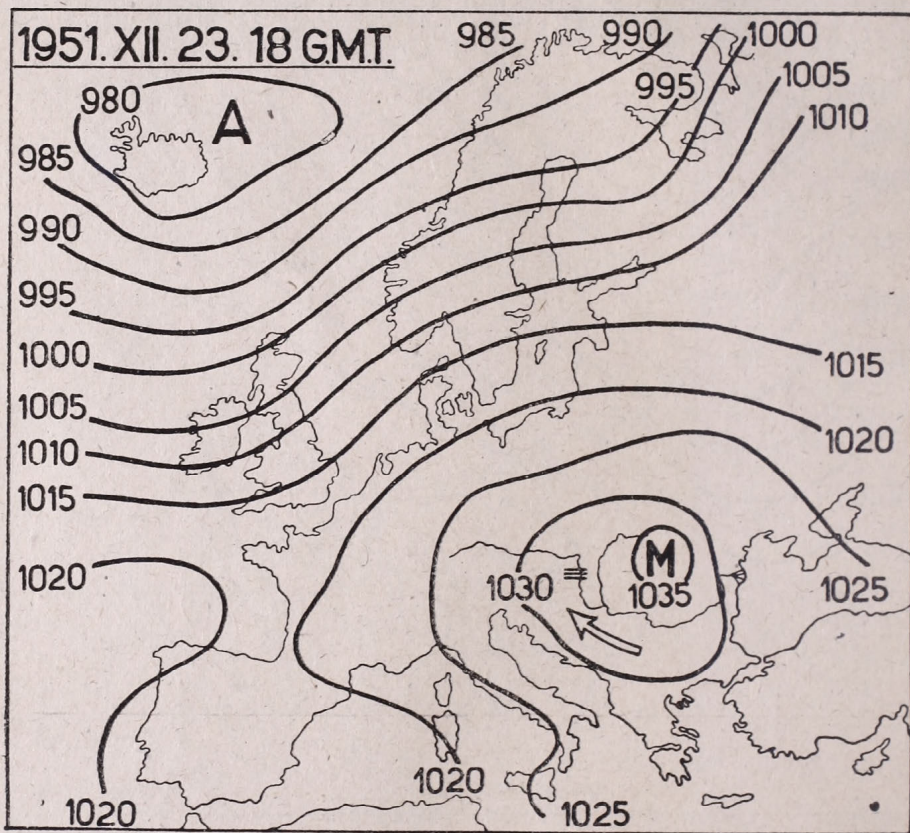 1951. XII. 23. 18 G.M.T.
985
990
1000
980
A
995
1005
1010
985
990
995
1000
1015
1005
1020
1010
1015
M
1020
1030
1035
1025
1020
1020
1025